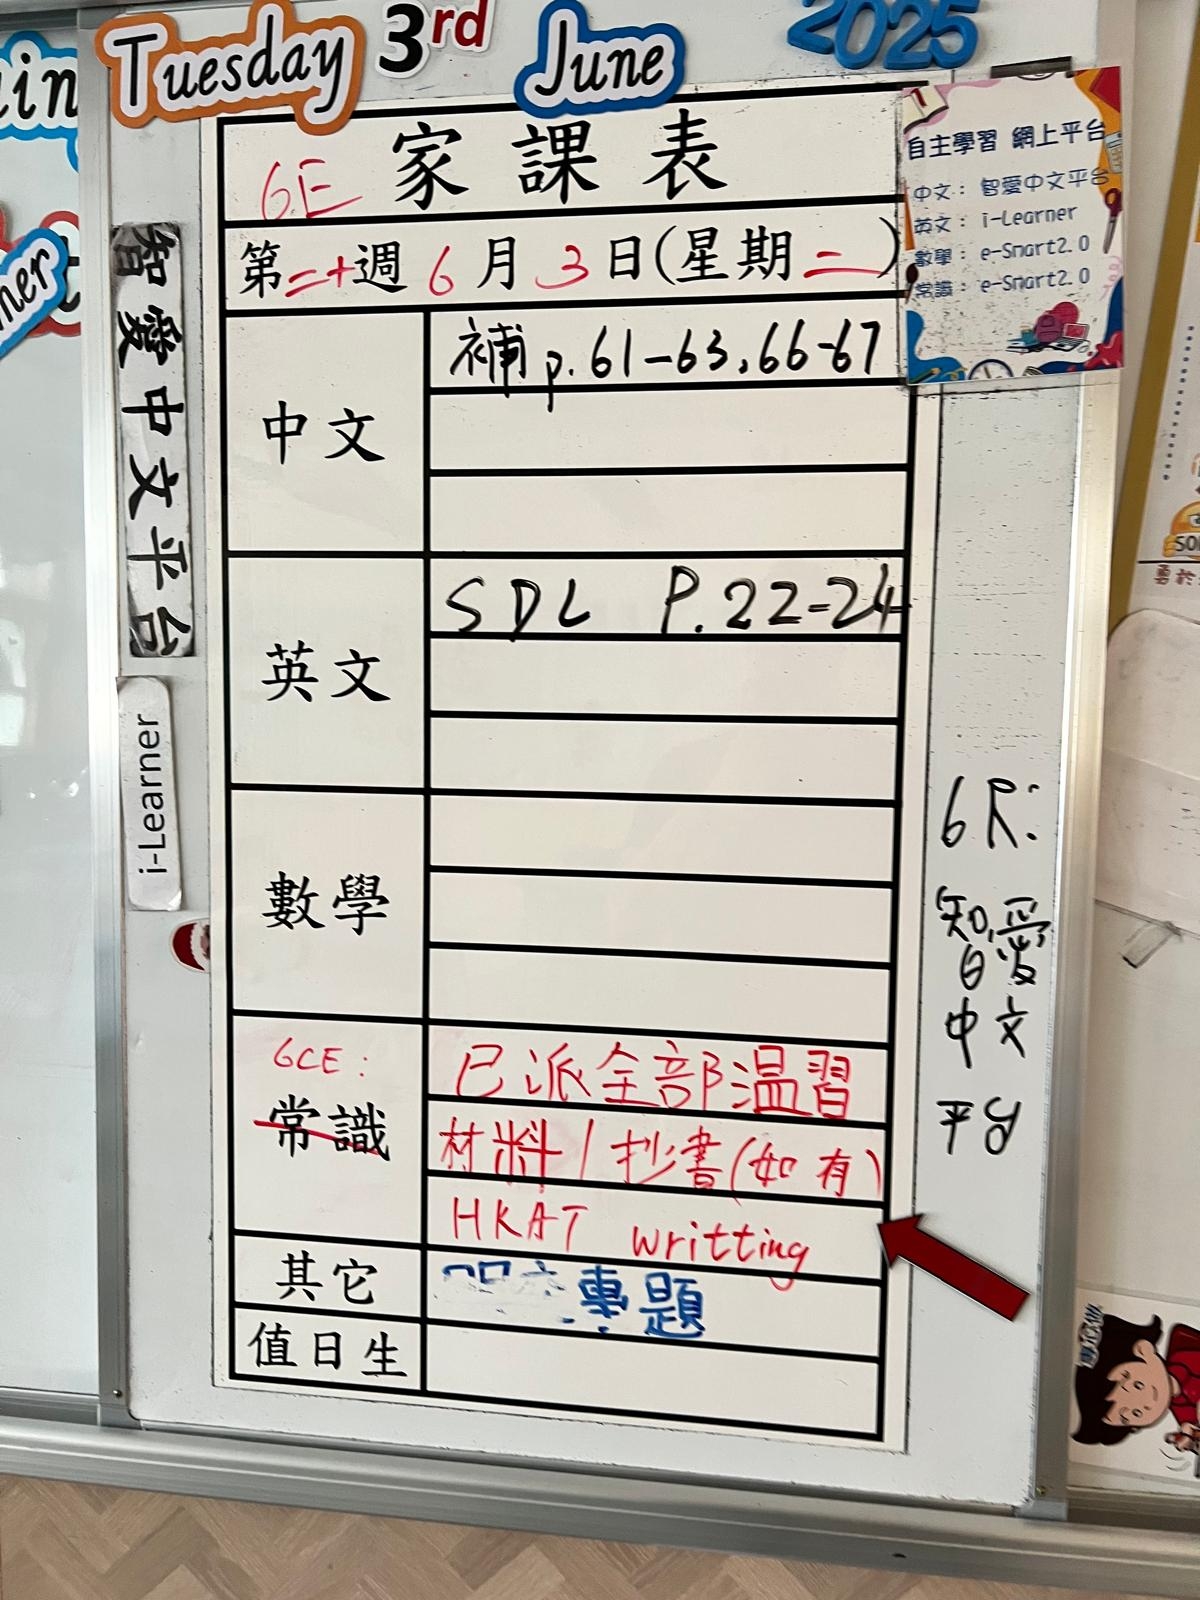 Tuesday 3rd June 2025
6E 家課表
第二十週 6月3日(星期二)
自主學習 網上平台
中文： 智愛中文平台
英文： i-Learner
數學： e-Smart2.0
常識： e-Smart2.0
智愛中文平台
i-Learner
中文
補 p.61-63,66-67
英文
SDL P.22-24
數學
6CE:
常識
已派全部温習
材料/抄書(如有)
HKAT writting
其它
專題
值日生
6R:
智愛
中文
平台